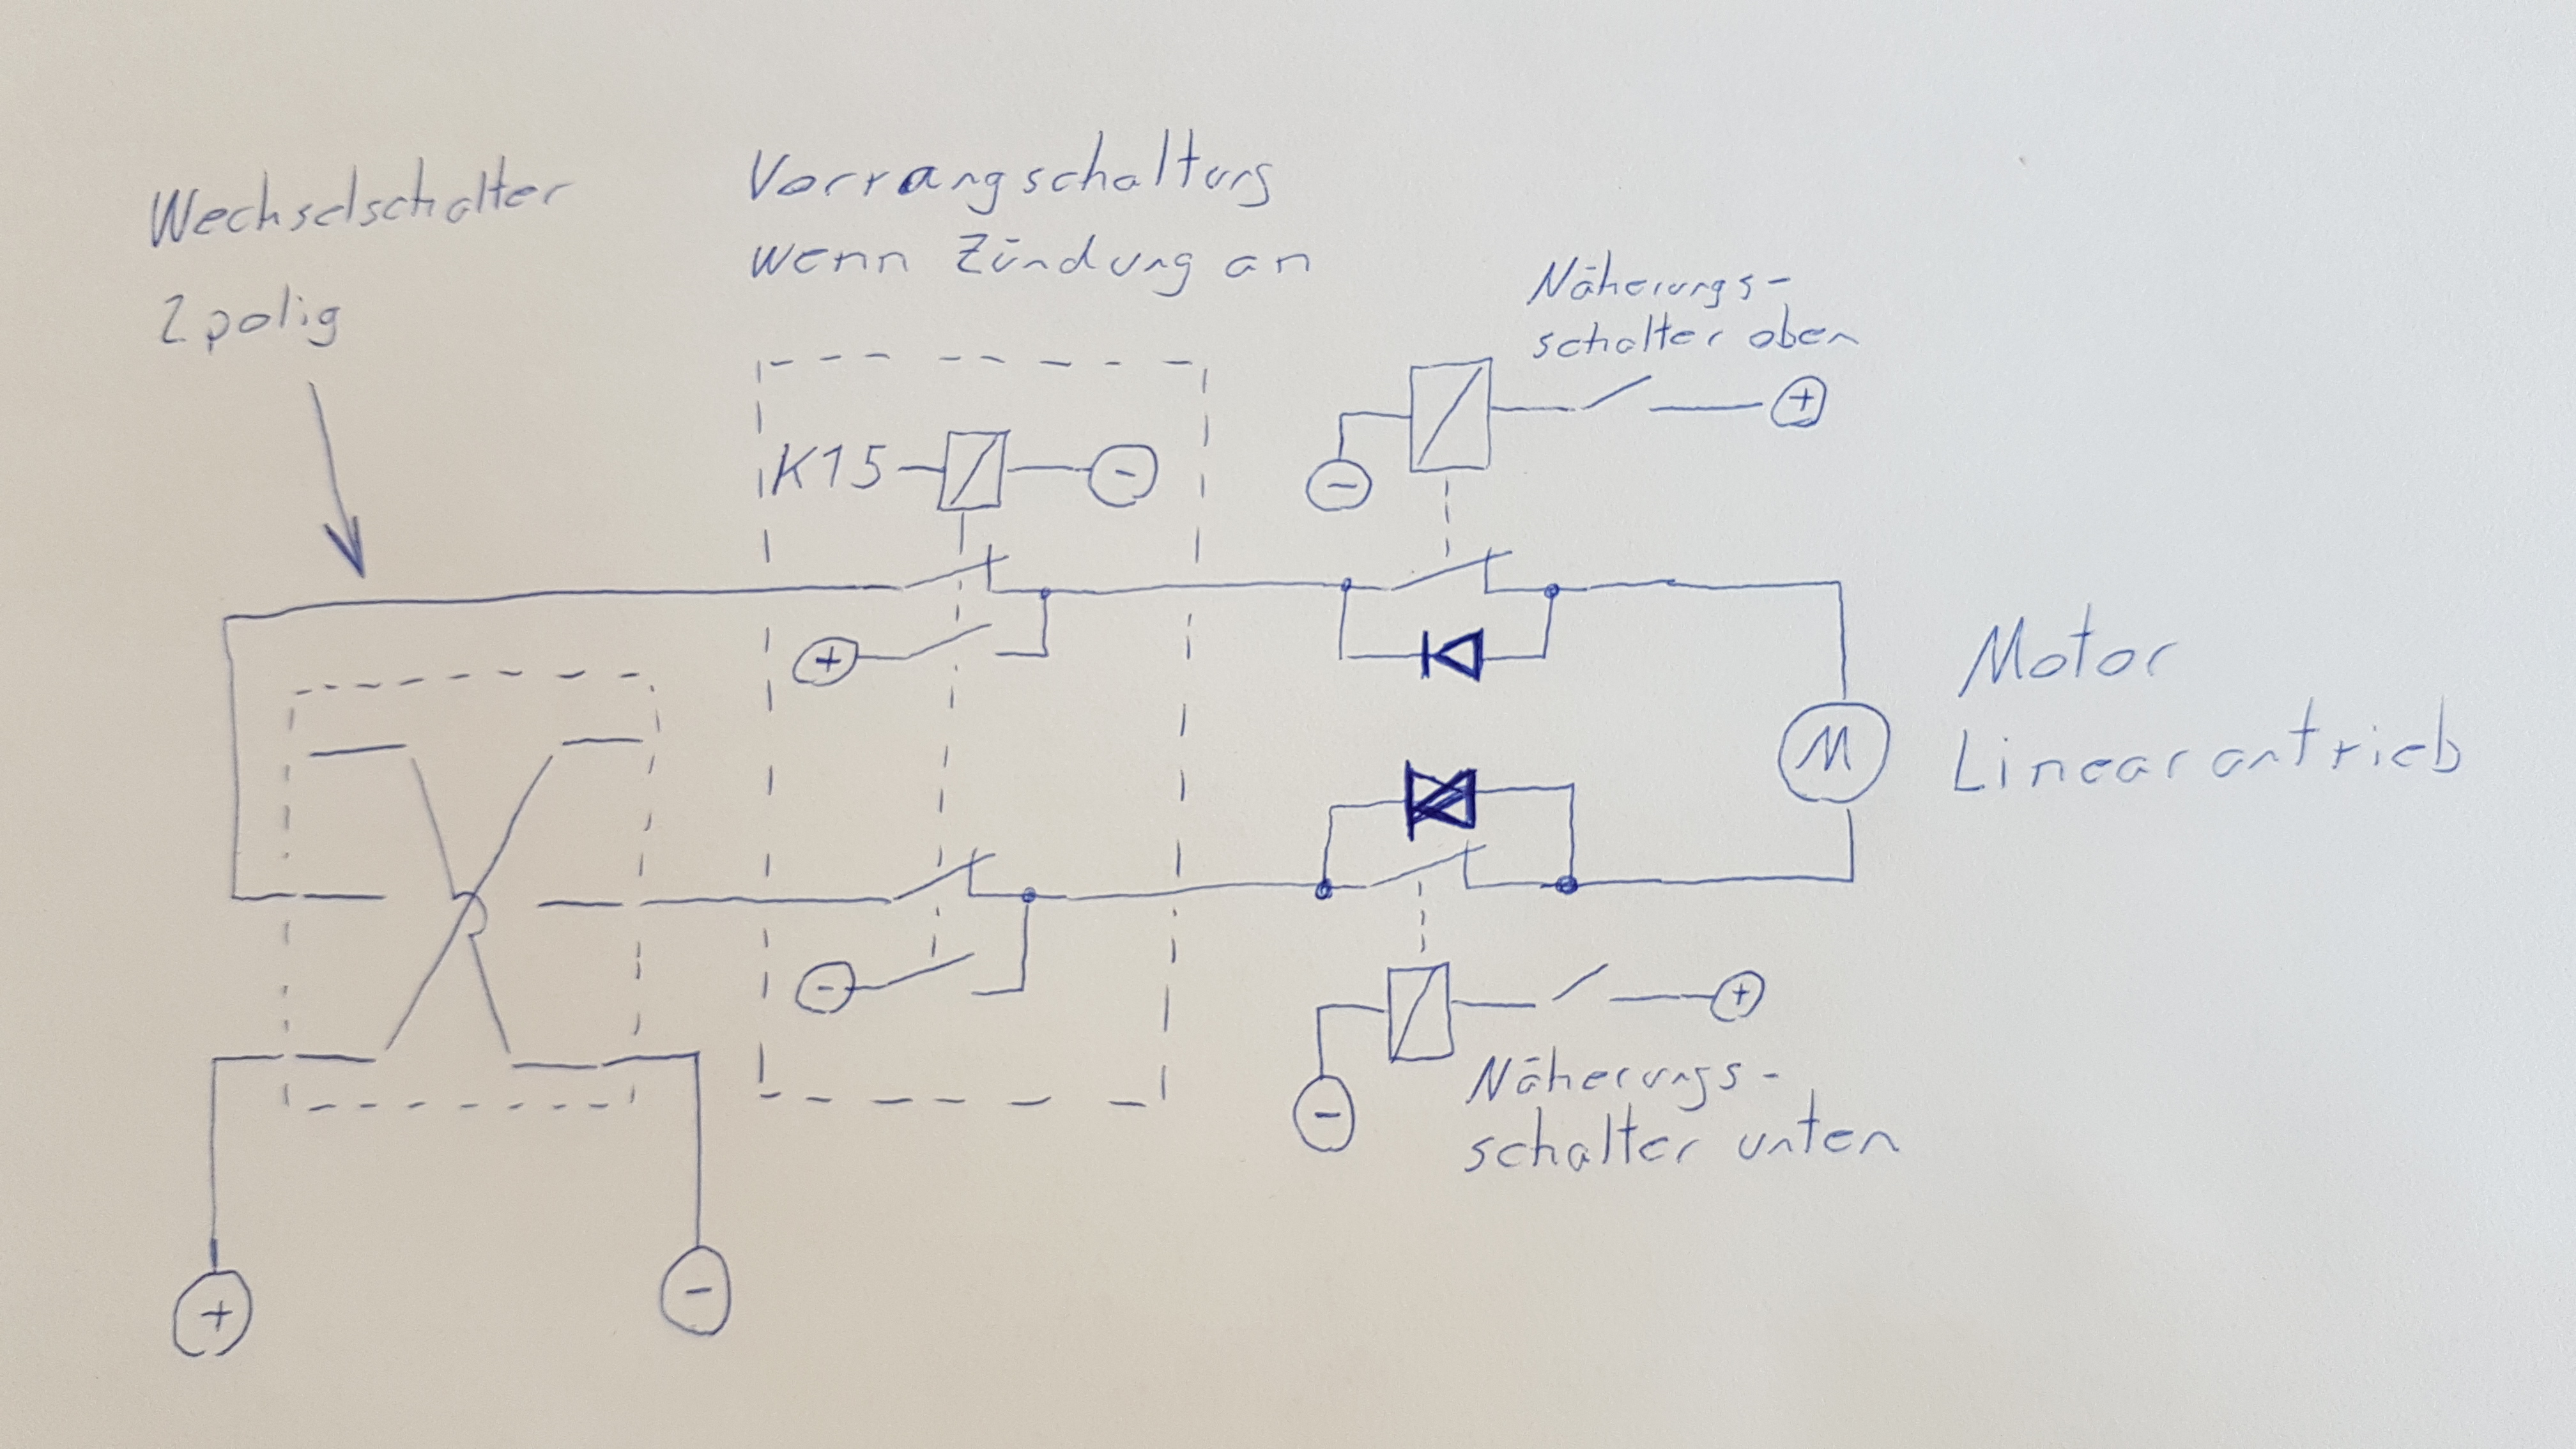 Wechselschalter
2polig
Vorrangschaltung
wenn Zündung an
Näherungs-
schalter oben
+
K15
-
-
+
Motor
Linearantrieb
M
-
+
Näherungs-
schalter unten
-
+
-